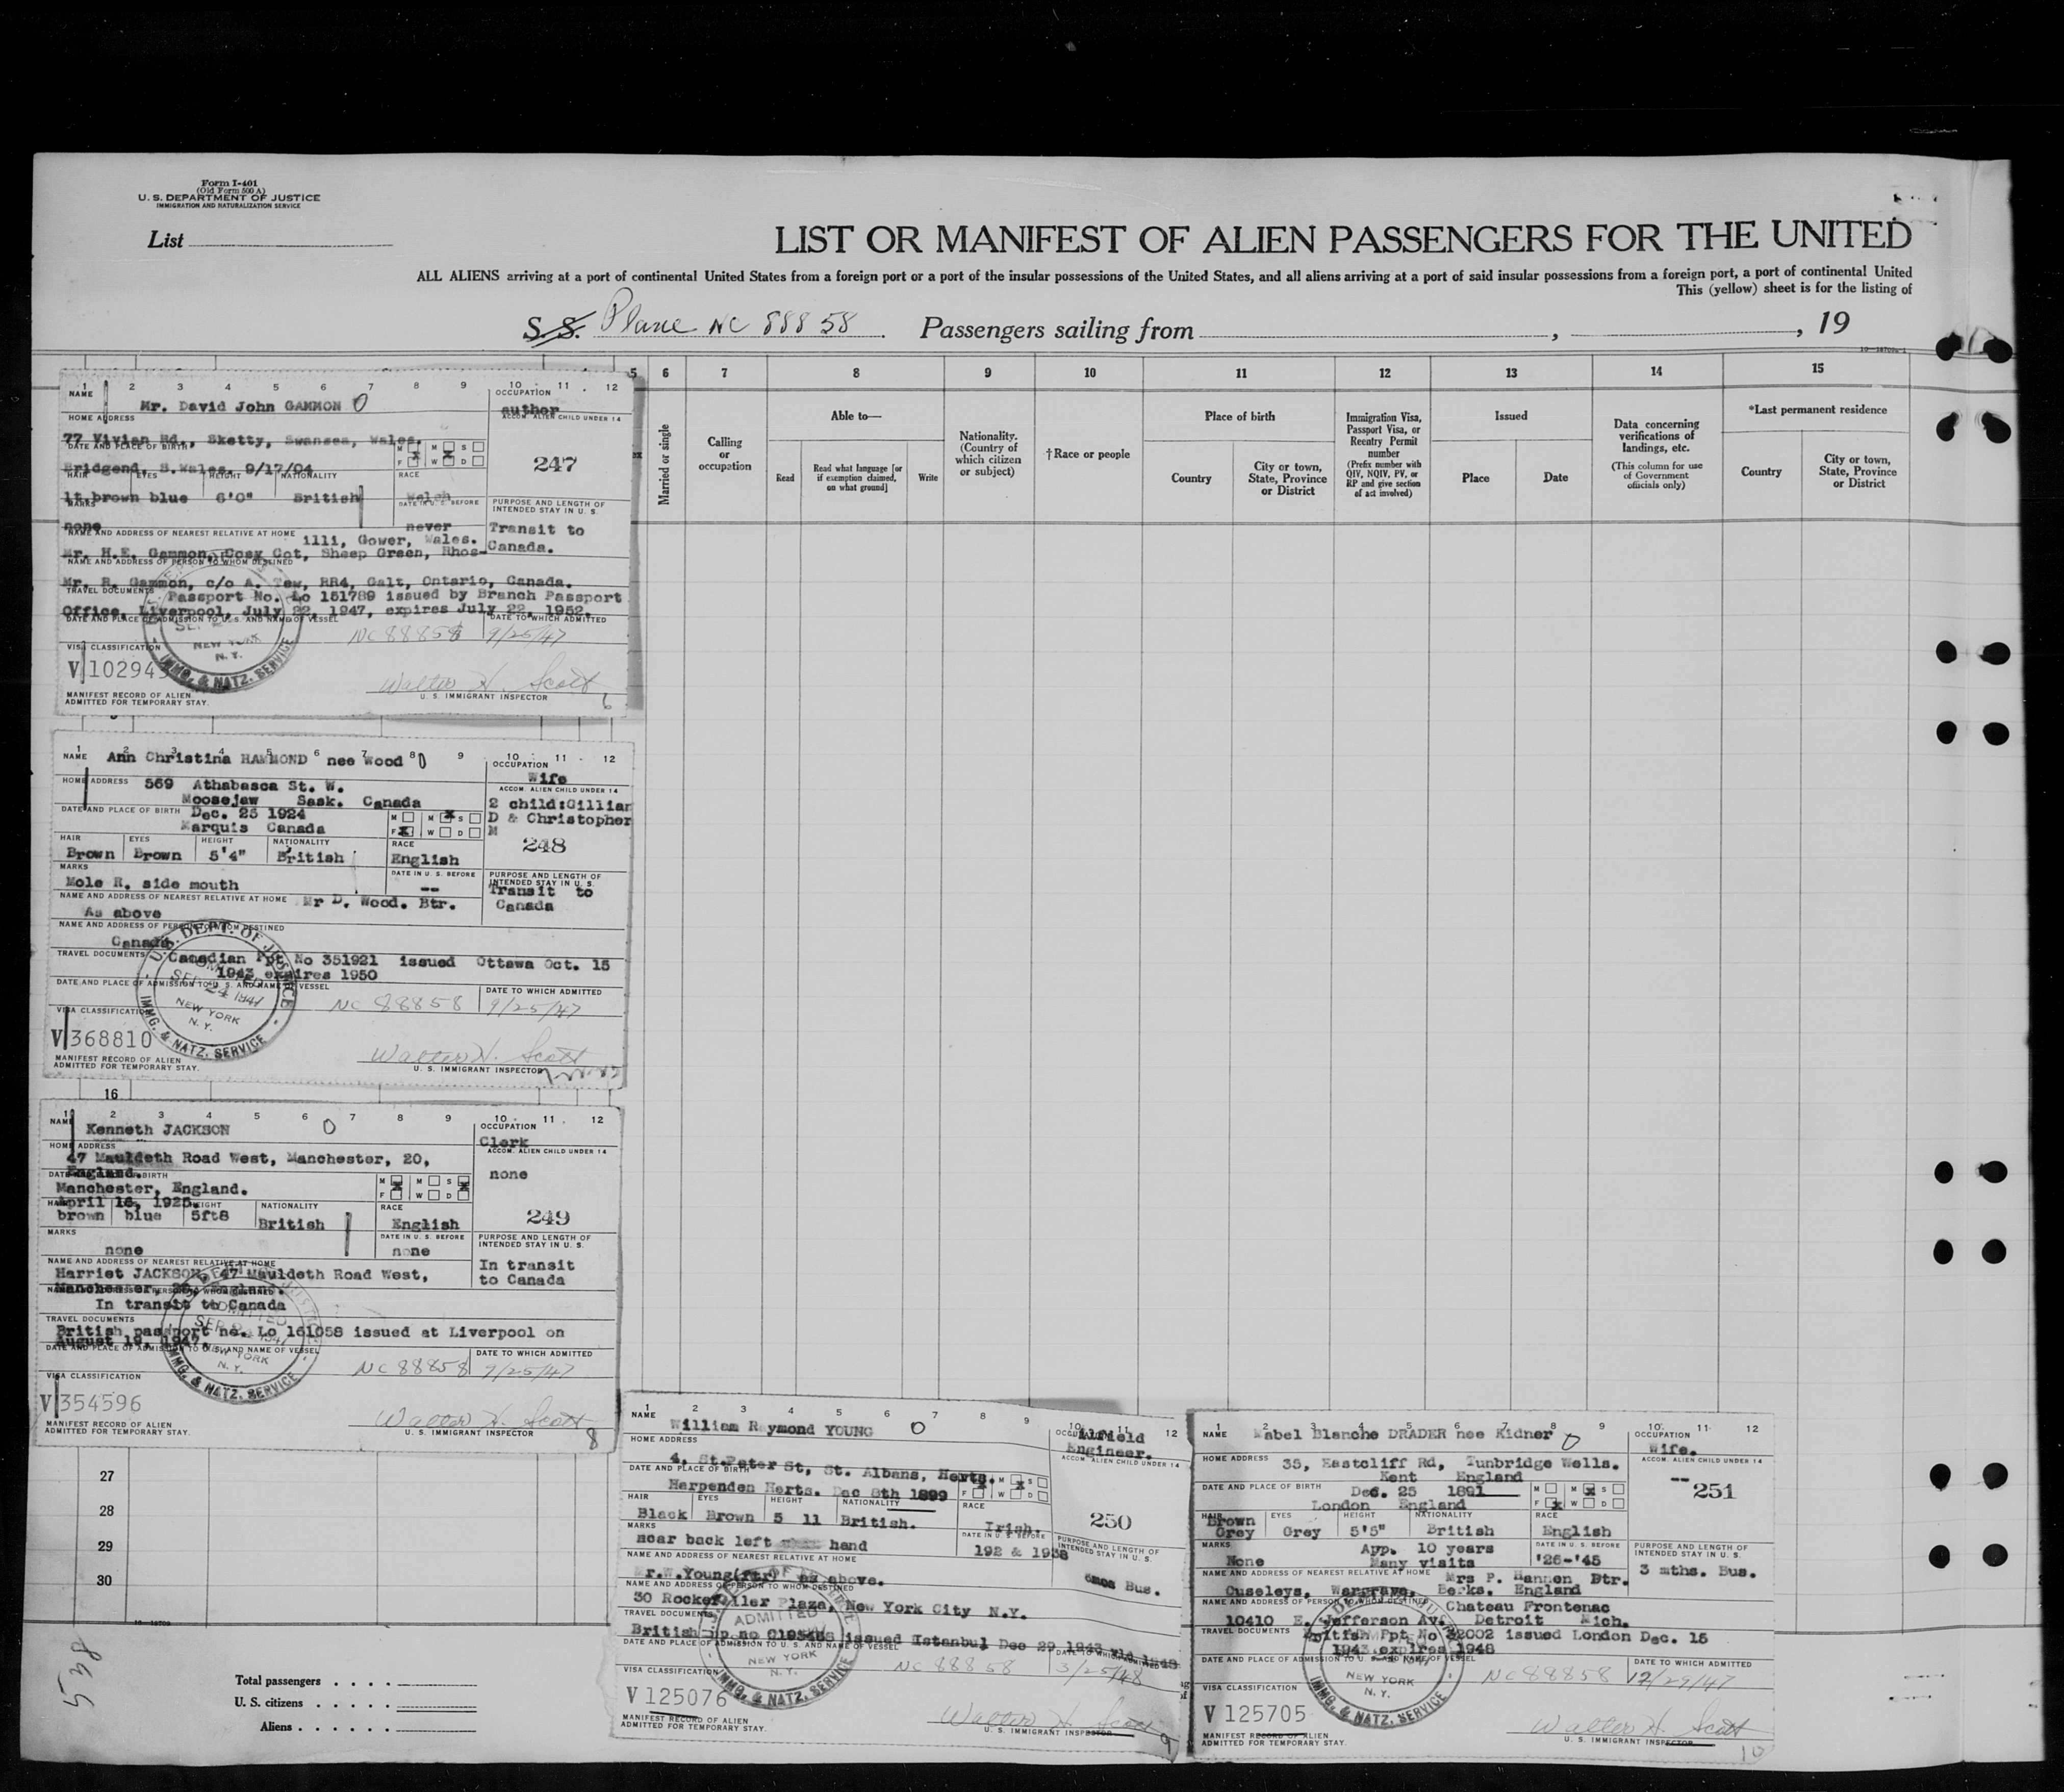 Form I-401
(Old Form 500 A)
U. S. DEPARTMENT OF JUSTICE
IMMIGRATION AND NATURALIZATION SERVICE
List
LIST OR MANIFEST OF ALIEN PASSENGERS FOR THE UNITED
ALL ALIENS arriving at a port of continental United States from a foreign port or a port of the insular possessions of the United States, and all aliens arriving at a port of said insular possessions from a foreign port, a port of continental United
This (yellow) sheet is for the listing of
S. S. Plane NC 88858 Passengers sailing from , , 19
5 6 7 8 9 10 11 12 13 14 15
Married or single
Calling or occupation
Able to—
Read
Read what language [or if exemption claimed, on what ground]
Write
Nationality. (Country of which citizen or subject)
†Race or people
Place of birth
Country
City or town, State, Province or District
Immigration Visa, Passport Visa, or Reentry Permit number
(Prefix number with QIV, NQIV, PV, or RP and give section of act involved)
Issued
Place
Date
Data concerning verifications of landings, etc.
(This column for use of Government officials only)
*Last permanent residence
Country
City or town, State, Province or District
1 2 3 4 5 6 7 8 9 10 11 12
NAME Mr. David John GAMMON
OCCUPATION author
HOME ADDRESS
ACCOM. ALIEN CHILD UNDER 14
77 Vivian Rd., Sketty, Swansea, Wales.
DATE AND PLACE OF BIRTH
Bridgend, S.Wales. 9/17/04
M F M W S D
247
HAIR EYES HEIGHT NATIONALITY RACE
lt.brown blue 6'0" British Welsh
MARKS none
DATE IN U. S. BEFORE never
PURPOSE AND LENGTH OF INTENDED STAY IN U. S.
Transit to Canada.
NAME AND ADDRESS OF NEAREST RELATIVE AT HOME illi, Gower, Wales.
Mr. H.E. Gammon, Cosy Cot, Sheep Green, Rhos-
NAME AND ADDRESS OF PERSON TO WHOM DESTINED
Mr. R. Gammon, c/o A. Tew, RR4, Galt, Ontario, Canada.
TRAVEL DOCUMENTS Passport No. Lo 151789 issued by Branch Passport
Office, Liverpool, July 22, 1947, expires July 22, 1952.
DATE AND PLACE OF ADMISSION TO U. S. AND NAME OF VESSEL
DATE TO WHICH ADMITTED
NC 88858 9/25/47
NEW YORK
N. Y.
IMMG. & NATZ. SERVICE
VISA CLASSIFICATION
V 10294
Walter H. Scott
MANIFEST RECORD OF ALIEN
ADMITTED FOR TEMPORARY STAY.
U. S. IMMIGRANT INSPECTOR
6
1 2 3 4 5 6 7 8 9 10 11 12
NAME Ann Christina HAMMOND nee Wood
OCCUPATION Wife
HOME ADDRESS 569 Athabasca St. W.
Moosejaw Sask. Canada
ACCOM. ALIEN CHILD UNDER 14
2 child:Gillian
D & Christopher
M
DATE AND PLACE OF BIRTH Dec. 25 1924
Marquis Canada
M F M W S D
248
HAIR EYES HEIGHT NATIONALITY RACE
Brown Brown 5'4" British English
MARKS
Mole R. side mouth
DATE IN U. S. BEFORE --
PURPOSE AND LENGTH OF INTENDED STAY IN U. S.
Transit to Canada
NAME AND ADDRESS OF NEAREST RELATIVE AT HOME Mr D. Wood. Btr.
As above
NAME AND ADDRESS OF PERSON TO WHOM DESTINED
Canada
TRAVEL DOCUMENTS Canadian Ppt No 351921 issued Ottawa Oct. 15
1943 expires 1950
DATE AND PLACE OF ADMISSION TO U. S. AND NAME OF VESSEL
DATE TO WHICH ADMITTED
NC 88858 9/25/47
U.S. DEPT. OF JUSTICE
SEP 24 1947
NEW YORK
N. Y.
IMMG. & NATZ. SERVICE
VISA CLASSIFICATION
V 368810
Walter H. Scott
MANIFEST RECORD OF ALIEN
ADMITTED FOR TEMPORARY STAY.
U. S. IMMIGRANT INSPECTOR
16
1 2 3 4 5 6 7 8 9 10 11 12
NAME Kenneth JACKSON
OCCUPATION Clerk
HOME ADDRESS
47 Mauldeth Road West, Manchester, 20,
England.
ACCOM. ALIEN CHILD UNDER 14
none
DATE AND PLACE OF BIRTH
Manchester, England.
April 16, 1925.
M F M W S D
249
HAIR EYES HEIGHT NATIONALITY RACE
brown blue 5ft8 British English
MARKS none
DATE IN U. S. BEFORE none
PURPOSE AND LENGTH OF INTENDED STAY IN U. S.
In transit to Canada
NAME AND ADDRESS OF NEAREST RELATIVE AT HOME
Harriet JACKSON, 47 Mauldeth Road West,
Manchester, 20, England.
NAME AND ADDRESS OF PERSON TO WHOM DESTINED
In transit to Canada
TRAVEL DOCUMENTS
British passport no. Lo 161058 issued at Liverpool on
August 19, 1947.
DATE AND PLACE OF ADMISSION TO U. S. AND NAME OF VESSEL
DATE TO WHICH ADMITTED
NC 88858 9/25/47
NEW YORK
N. Y.
IMMG. & NATZ. SERVICE
VISA CLASSIFICATION
V 354596
Walter H. Scott
MANIFEST RECORD OF ALIEN
ADMITTED FOR TEMPORARY STAY.
U. S. IMMIGRANT INSPECTOR
8
27
28
29
30
538
Total passengers
U. S. citizens
Aliens
1 2 3 4 5 6 7 8 9 10 11 12
NAME William Raymond YOUNG
OCCUPATION Oilfield Engineer.
HOME ADDRESS
4, St.Peter St, St. Albans, Herts.
ACCOM. ALIEN CHILD UNDER 14
DATE AND PLACE OF BIRTH
Harpenden Herts. Dec 8th 1899
250
HAIR EYES HEIGHT NATIONALITY RACE
Black Brown 5 11 British. Irish.
MARKS
scar back left hand
DATE IN U. S. BEFORE
192 & 1938
PURPOSE AND LENGTH OF INTENDED STAY IN U. S.
6mos Bus.
NAME AND ADDRESS OF NEAREST RELATIVE AT HOME
Mr.W.Young(ftr) as above.
NAME AND ADDRESS OF PERSON TO WHOM DESTINED
30 Rockefeller Plaza, New York City N.Y.
TRAVEL DOCUMENTS
British pp no issued Istanbul Dec 29 1943 vld 1948
DATE AND PLACE OF ADMISSION TO U. S. AND NAME OF VESSEL
DATE TO WHICH ADMITTED
NC 88858 3/25/48
ADMITTED
NEW YORK
N. Y.
IMMG. & NATZ. SERVICE
VISA CLASSIFICATION
V 125076
Walter H. Scott
MANIFEST RECORD OF ALIEN
ADMITTED FOR TEMPORARY STAY.
U. S. IMMIGRANT INSPECTOR
9
1 2 3 4 5 6 7 8 9 10 11 12
NAME Mabel Blanche DRADER nee Kidner
OCCUPATION Wife.
HOME ADDRESS 35, Eastcliff Rd, Tunbridge Wells.
Kent England
ACCOM. ALIEN CHILD UNDER 14
--
DATE AND PLACE OF BIRTH Dec. 25 1891
London England
M F M W S D
251
HAIR EYES HEIGHT NATIONALITY RACE
Brown Grey Grey 5'5" British English
MARKS None
App. 10 years
Many visits
DATE IN U. S. BEFORE
'26-'45
PURPOSE AND LENGTH OF INTENDED STAY IN U. S.
3 mths. Bus.
NAME AND ADDRESS OF NEAREST RELATIVE AT HOME Mrs P. Hannen Dtr.
Cuseleys, Wargrave, Berks. England
NAME AND ADDRESS OF PERSON TO WHOM DESTINED Chateau Frontenac
10410 E. Jefferson Av. Detroit Mich.
TRAVEL DOCUMENTS British Ppt No 32002 issued London Dec. 15
1943 expires 1948
DATE AND PLACE OF ADMISSION TO U. S. AND NAME OF VESSEL
DATE TO WHICH ADMITTED
NC 88858 12/29/47
NEW YORK
N. Y.
IMMG. & NATZ. SERVICE
VISA CLASSIFICATION
V 125705
Walter H. Scott
MANIFEST RECORD OF ALIEN
ADMITTED FOR TEMPORARY STAY.
U. S. IMMIGRANT INSPECTOR
10